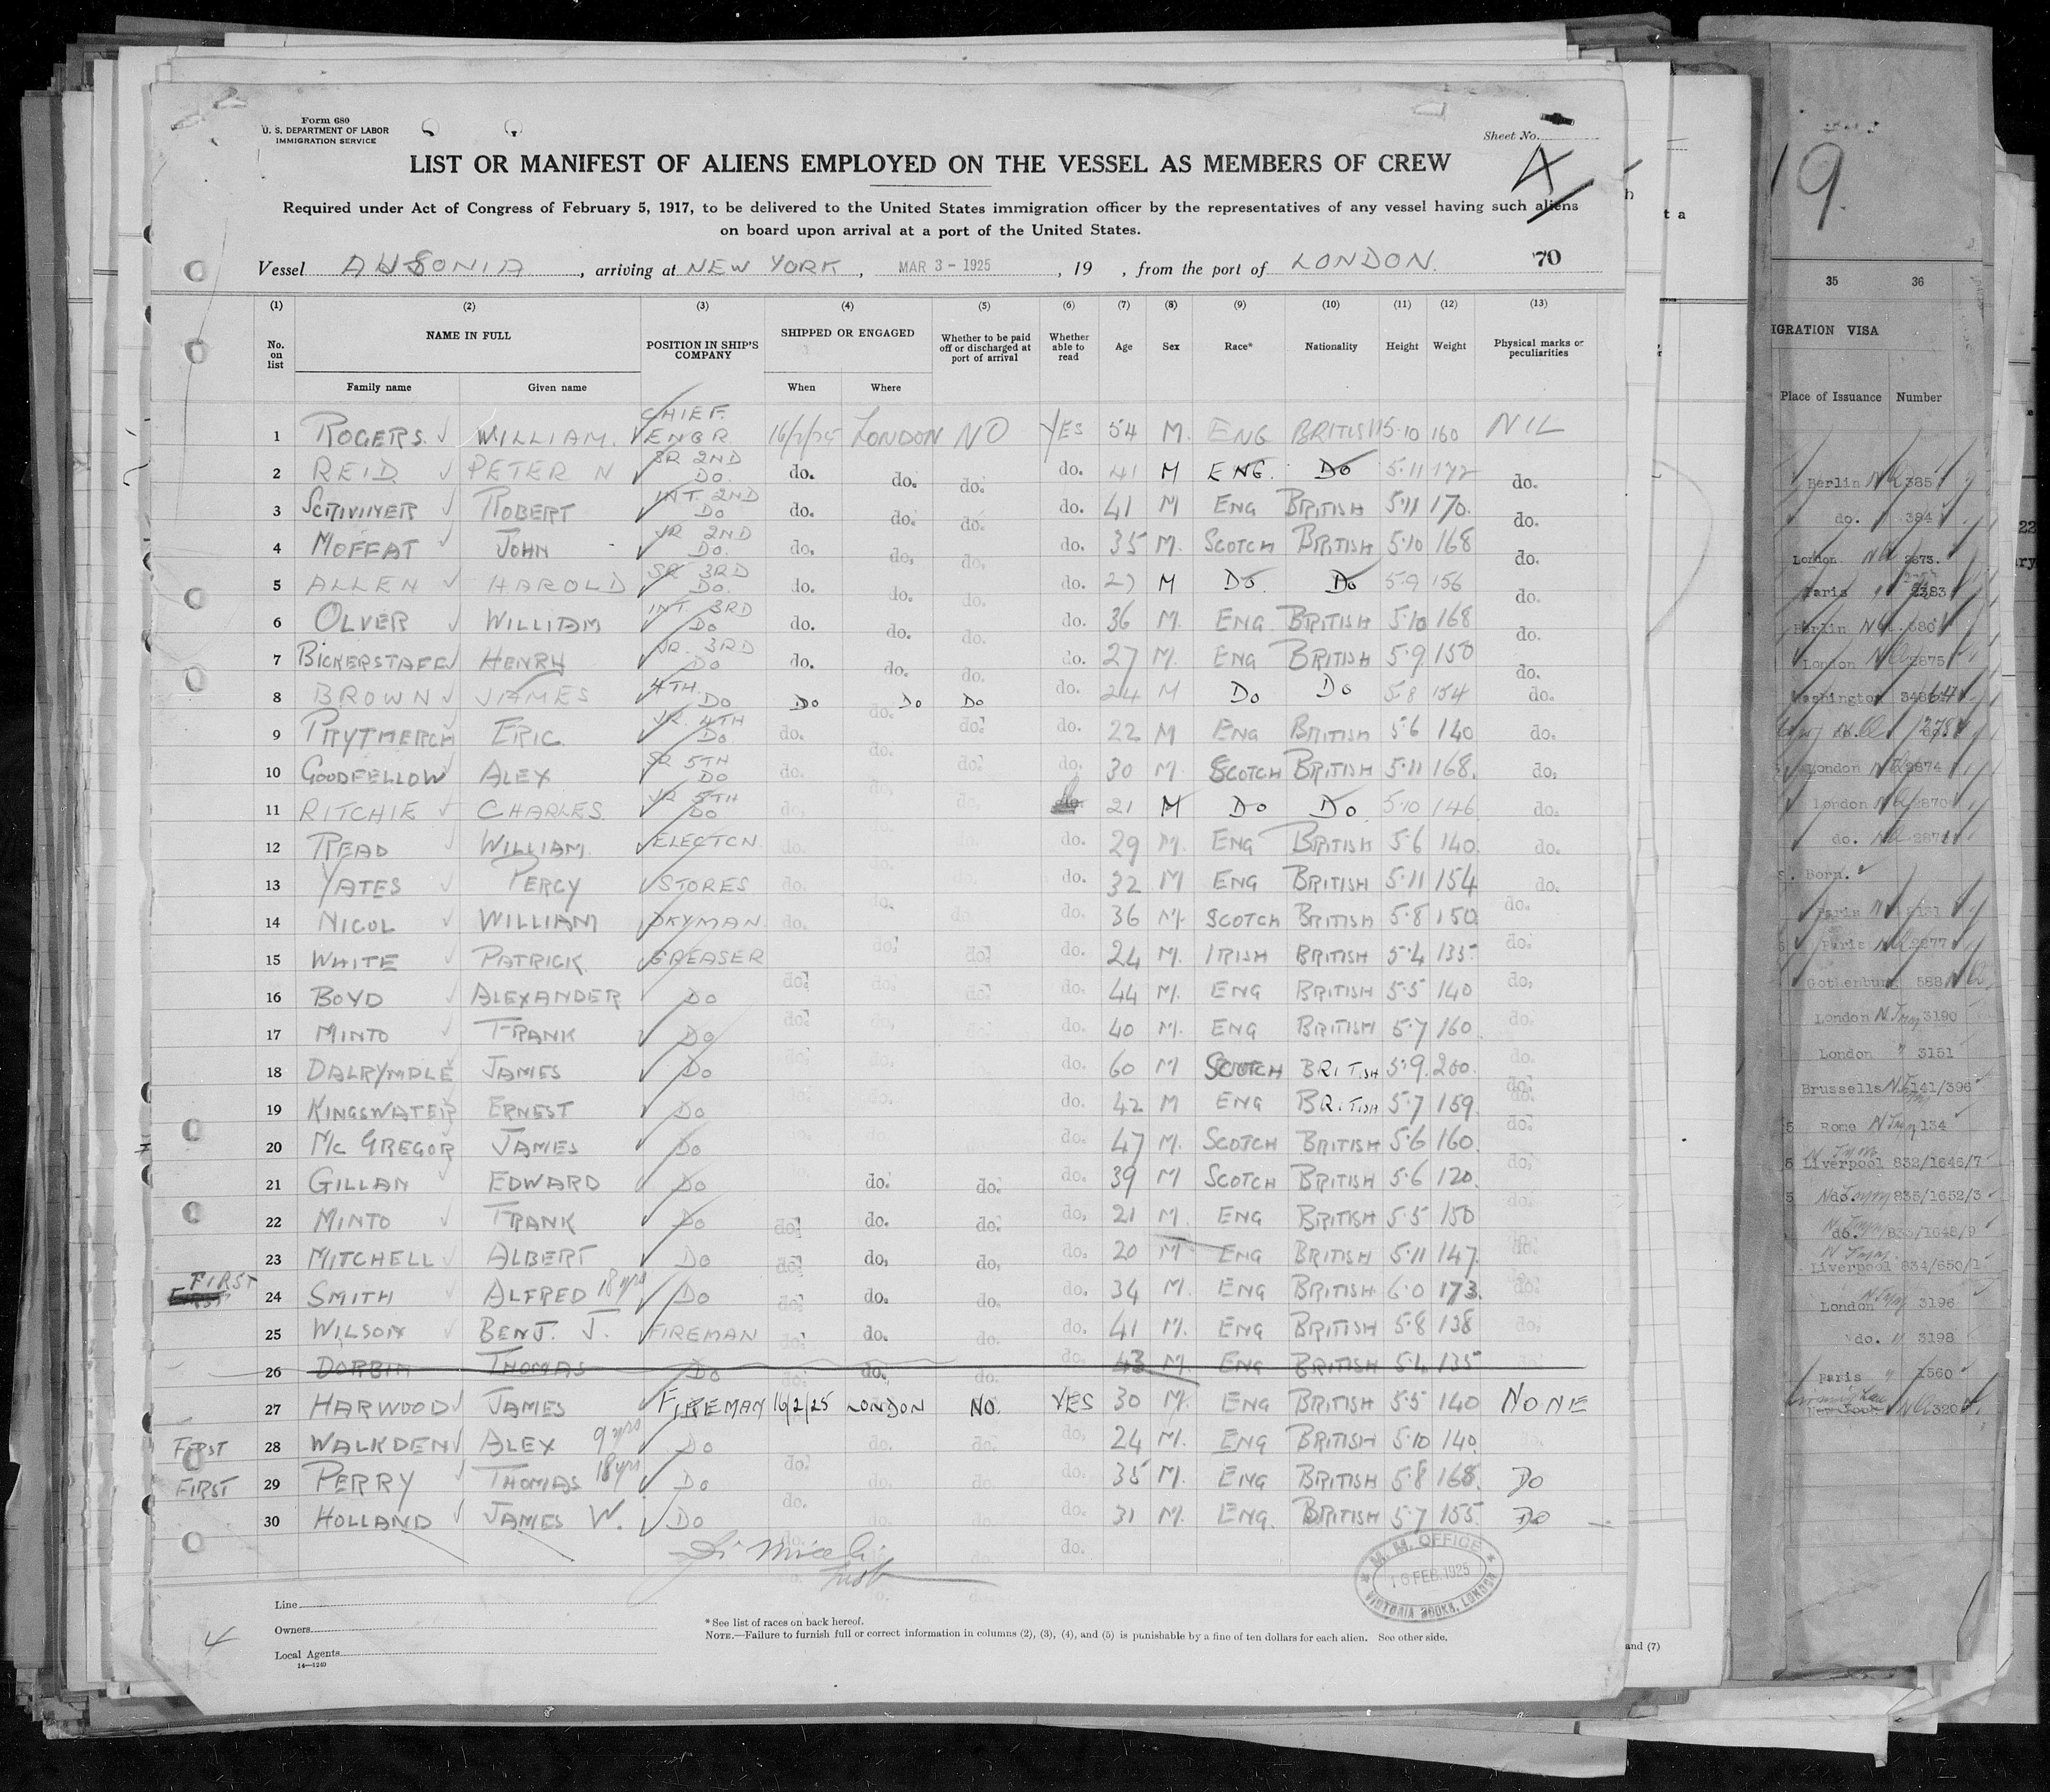 Form 680
U. S. DEPARTMENT OF LABOR
IMMIGRATION SERVICE
Sheet No.
4
LIST OR MANIFEST OF ALIENS EMPLOYED ON THE VESSEL AS MEMBERS OF CREW
Required under Act of Congress of February 5, 1917, to be delivered to the United States immigration officer by the representatives of any vessel having such aliens
on board upon arrival at a port of the United States.
Vessel AUSONIA, arriving at NEW YORK, MAR 3 - 1925, 19 , from the port of LONDON. 70
(1) (2) (3) (4) (5) (6) (7) (8) (9) (10) (11) (12) (13)
No. on list NAME IN FULL POSITION IN SHIP'S COMPANY SHIPPED OR ENGAGED Whether to be paid off or discharged at port of arrival Whether able to read Age Sex Race* Nationality Height Weight Physical marks or peculiarities
Family name Given name When Where
1 ROGERS WILLIAM. CHIEF ENGR 16/2/25 LONDON NO YES 54 M. ENG BRITISH 5·10 160 NIL
2 REID PETER N SR 2ND DO. do. do. do. do. 41 M ENG. DO 5·11 172 do.
3 SCRIVINER ROBERT INT. 2ND DO do. do. do. do. 41 M ENG BRITISH 5·11 170. do.
4 MOFFAT JOHN JR 2ND DO. do. do. do. do. 35 M. SCOTCH BRITISH 5·10 168 do.
5 ALLEN HAROLD SR 3RD DO. do. do. do. do. 27 M DO. DO 5·9 156 do.
6 OLVER WILLIAM INT 3RD DO do. do. do. do. 36 M. ENG BRITISH 5·10 168 do.
7 BICKERSTAFF HENRY JR. 3RD DO do. do. do. do. 27 M. ENG BRITISH 5·9 150 do.
8 BROWN JAMES 4TH DO DO DO DO do. 24 M DO DO 5·8 154 do.
9 PRYTHERCH ERIC. JR. 4TH DO do. do. do. do. 22 M ENG BRITISH 5·6 140 do.
10 GOODFELLOW ALEX SR 5TH DO do. do. do. do. 30 M. SCOTCH BRITISH 5·11 168. do.
11 RITCHIE CHARLES. JR 5TH DO do. do. do. do. 21 M DO DO. 5·10 146 do.
12 READ WILLIAM. ELECTCN. do. do. do. 29 M. ENG BRITISH 5·6 140. do.
13 YATES PERCY STORES do. do. do. 32 M ENG BRITISH 5·11 154 do.
14 NICOL WILLIAM DKYMAN. do. do. do. 36 M. SCOTCH BRITISH 5·8 150. do.
15 WHITE PATRICK. GREASER do. do. do. 24 M. IRISH BRITISH 5·4 135. do.
16 BOYD ALEXANDER DO do. do. do. do. 44 M. ENG BRITISH 5·5 140 do.
17 MINTO FRANK DO do. do. do. do. 40 M. ENG BRITISH 5·7 160. do.
18 DALRYMPLE JAMES DO do. 60 M SCOTCH BRITISH 5·9. 200. do.
19 KINGSWATER ERNEST DO do. 42 M ENG BRITISH 5·7 159. do.
20 MC GREGOR JAMES DO do. 47 M. SCOTCH BRITISH 5·6 160. do.
21 GILLAN EDWARD DO do. do. do. 39 M SCOTCH BRITISH 5·6 120. do.
22 MINTO FRANK DO do. do. do. do. 21 M. ENG BRITISH 5·5 150 do.
23 MITCHELL ALBERT DO do. do. do. do. 20 M ENG BRITISH 5·11 147. do.
FIRST 24 SMITH ALFRED 18 yrs DO do. do. do. do. 34 M. ENG BRITISH 6·0 173. do.
25 WILSON BENJ. J. FIREMAN do. do. do. do. 41 M. ENG BRITISH 5·8 138 do.
26 DORBIN THOMAS DO do. do. do. 43 M. ENG BRITISH 5·4 135
27 HARWOOD JAMES FIREMAN 16/2/25 LONDON NO. YES 30 M. ENG BRITISH 5·5 140 NONE
FIRST 28 WALKDEN ALEX 9 yrs DO do. do. do. 24 M. ENG BRITISH 5·10 140.
FIRST 29 PERRY THOMAS 18 yrs DO do. do. do. do. 35 M. ENG BRITISH 5·8 168. DO
30 HOLLAND JAMES W. DO do. do. do. do. 31 M. ENG. BRITISH 5·7 155. DO
do.
M. M. OFFICE
16 FEB. 1925
VICTORIA DOCKS, LONDON
Line
Owners
Local Agents
14—1240
*See list of races on back hereof.
NOTE.—Failure to furnish full or correct information in columns (2), (3), (4), and (5) is punishable by a fine of ten dollars for each alien. See other side.
4
and (7)
19.
35 36
IGRATION VISA
Place of Issuance Number
Berlin 385
do. 384
London 2873.
Paris 2383
Berlin 380
London 2875
Washington
London 2874
London 2870
do. 287
Born.
Paris
Paris 2277
Gothenburg 588
London 3190
London 3151
Brussells 141/396
Rome 134
Liverpool 832/1646/7
do. 835/1652/3
do. 833/1648/9
Liverpool 834/650/1
London 3196
do. 3198
Paris 1560
320